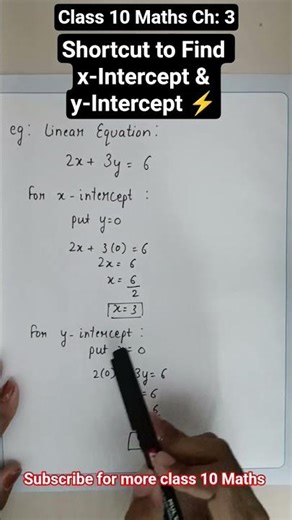 Class 10 Maths Ch: 3
Shortcut to Find
x-Intercept &
y-Intercept ⚡
eg: Linear Equation:
2x + 3y = 6
For x-intercept :
put y=0
2x + 3(0) = 6
2x = 6
x = 6/2
x = 3
For y-intercept:
put = 0
2(0) 3y = 6
= 6
6
Subscribe for more class 10 Maths